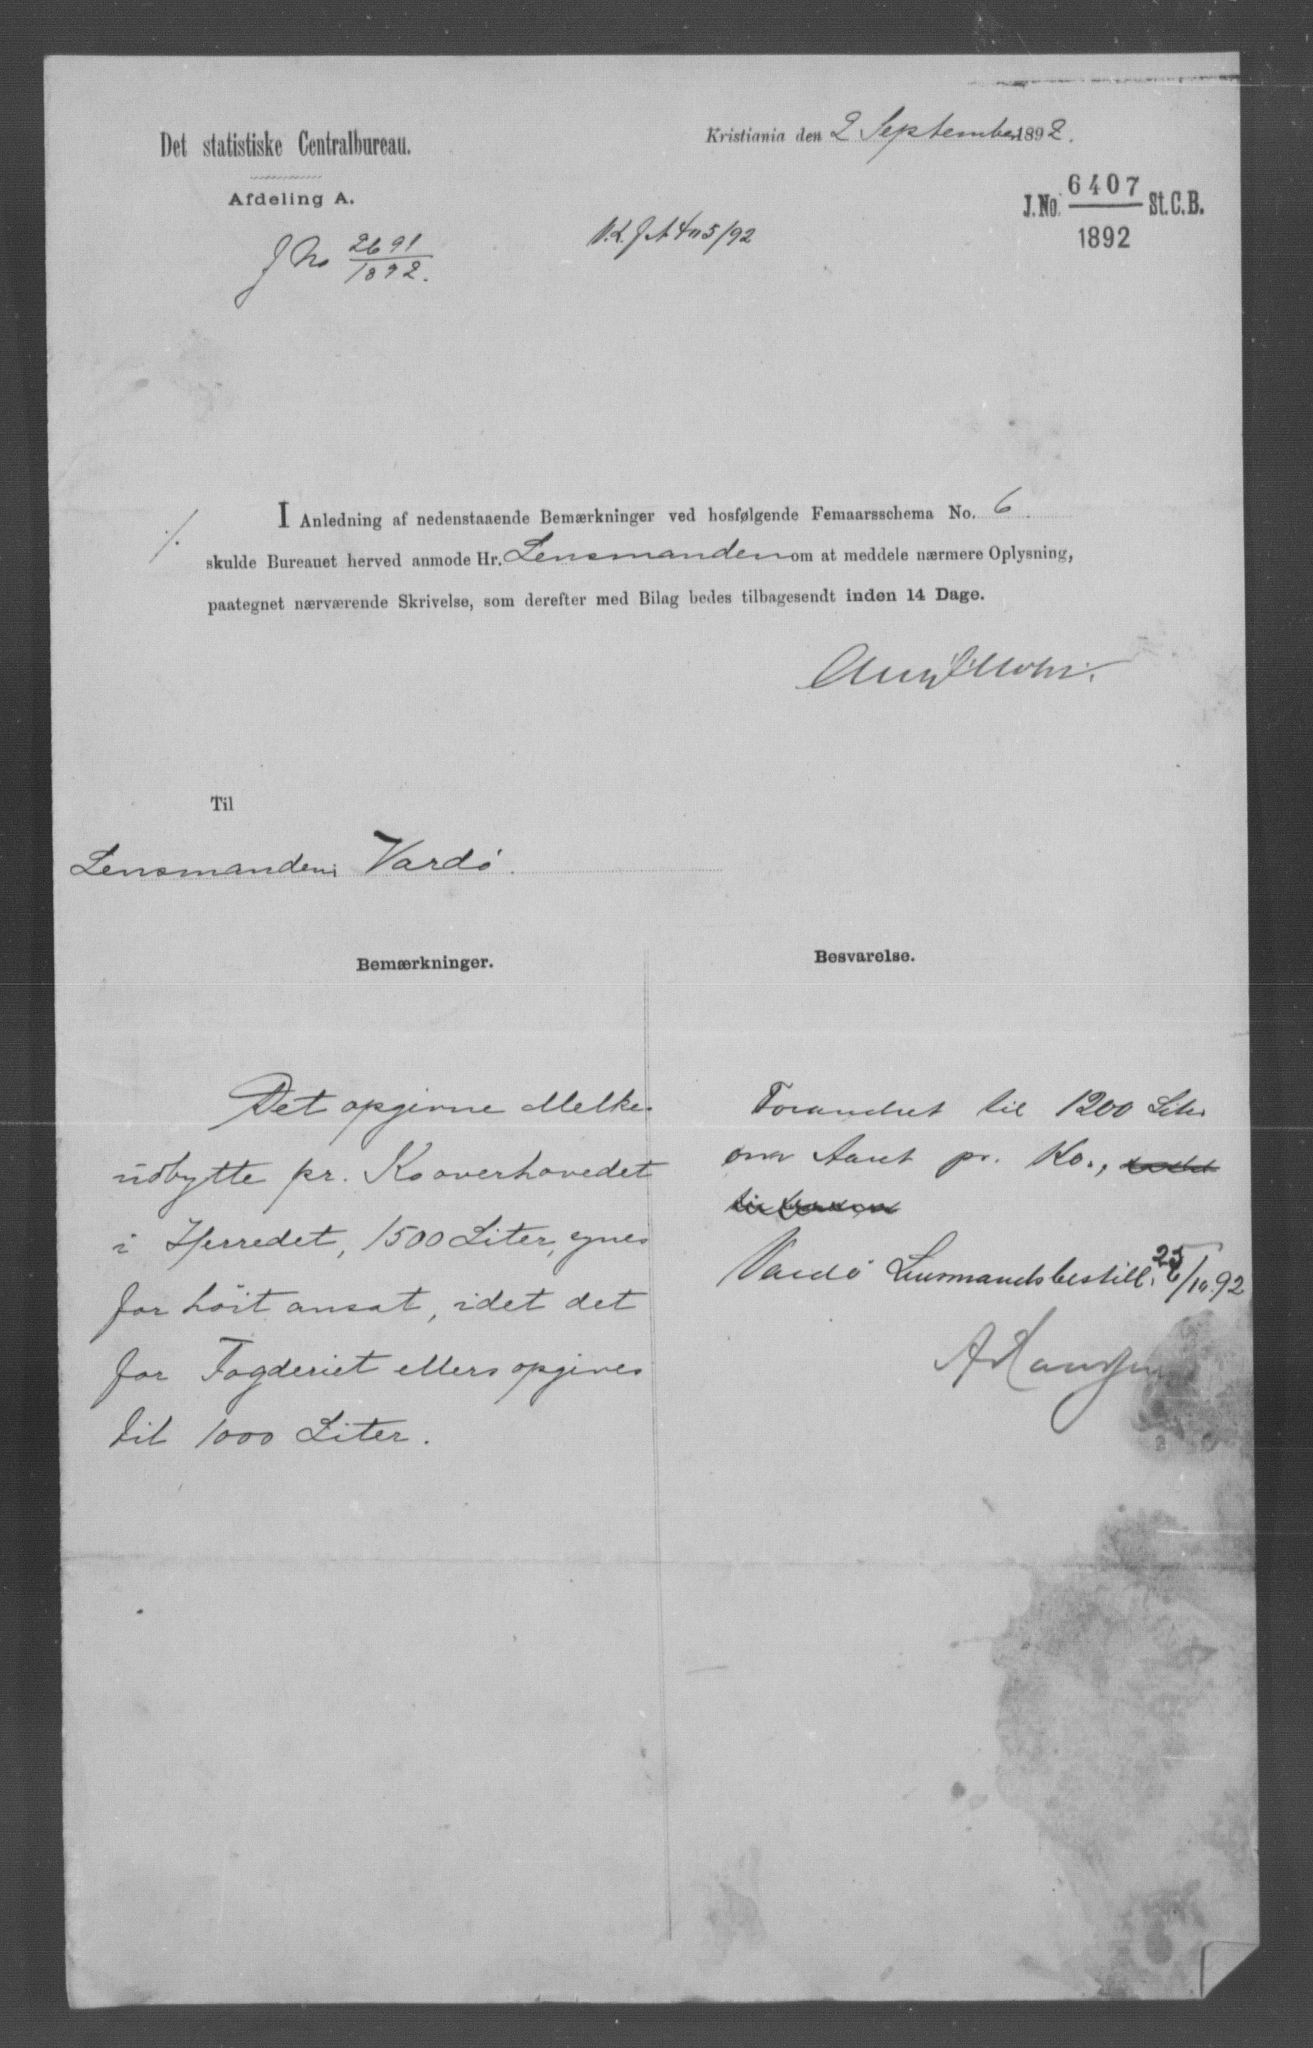 Det statistiske Centralbureau.
Afdeling A.
J No 2691/1892.
Kristiania den 2 September 1892.
J. No. 6407/1892 St. C. B.
V. L. J. № 405/92
I Anledning af nedenstaaende Bemærkninger ved hosfølgende Femaarsschema No. 6.
./. skulde Bureauet herved anmode Hr. Lensmanden om at meddele nærmere Oplysning,
paategnet nærværende Skrivelse, som derefter med Bilag bedes tilbagesendt inden 14 Dage.
Til
Lensmanden i Vardö.
Bemærkninger.
Det opgivne Melke-
udbytte pr. Ko overhovedet
i Herredet, 1500 Liter, synes
for höit ansat, idet det
for Fogderiet ellers opgives
til 1000 Liter.
Besvarelse.
Forandret til 1200 Liter
om Aaret pr. Ko.,
Vardö Lensmandsbestill. 25/10.92
A Hansen